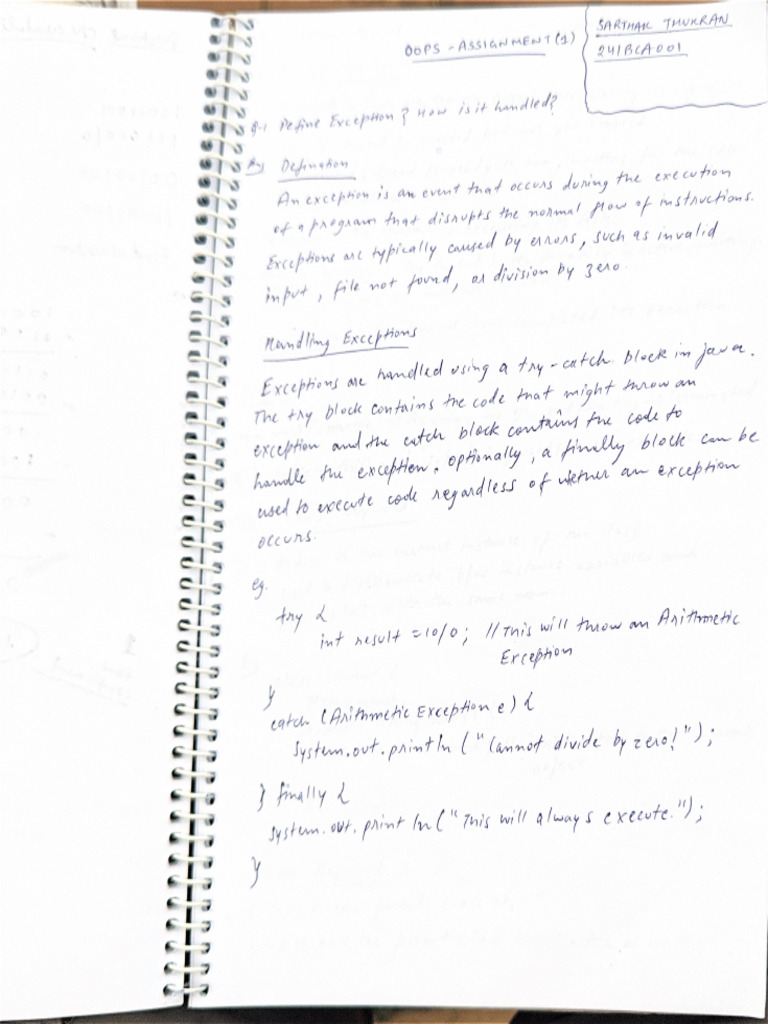 OOPS - ASSIGNMENT (1)
SARTHAK THUKRAN
241BCA001
Q-1 Define Exception? How is it handled?
Defination
An exception is an event that occurs during the execution
of a program that disrupts the normal flow of instructions.
Exceptions are typically caused by errors, such as invalid
input, file not found, or division by zero.
Handling Exceptions
Exceptions are handled using a try-catch block in java.
The try block contains the code that might throw an
exception and the catch block contains the code to
handle the exception. optionally, a finally block can be
used to execute code regardless of whether an exception
occurs.
eg.
try {
int result = 10/0; // This will throw an Arithmetic
Exception
}
catch (Arithmetic Exception e) {
System.out.println ("Cannot divide by zero!");
} finally {
System.out.println ("This will always execute.");
}